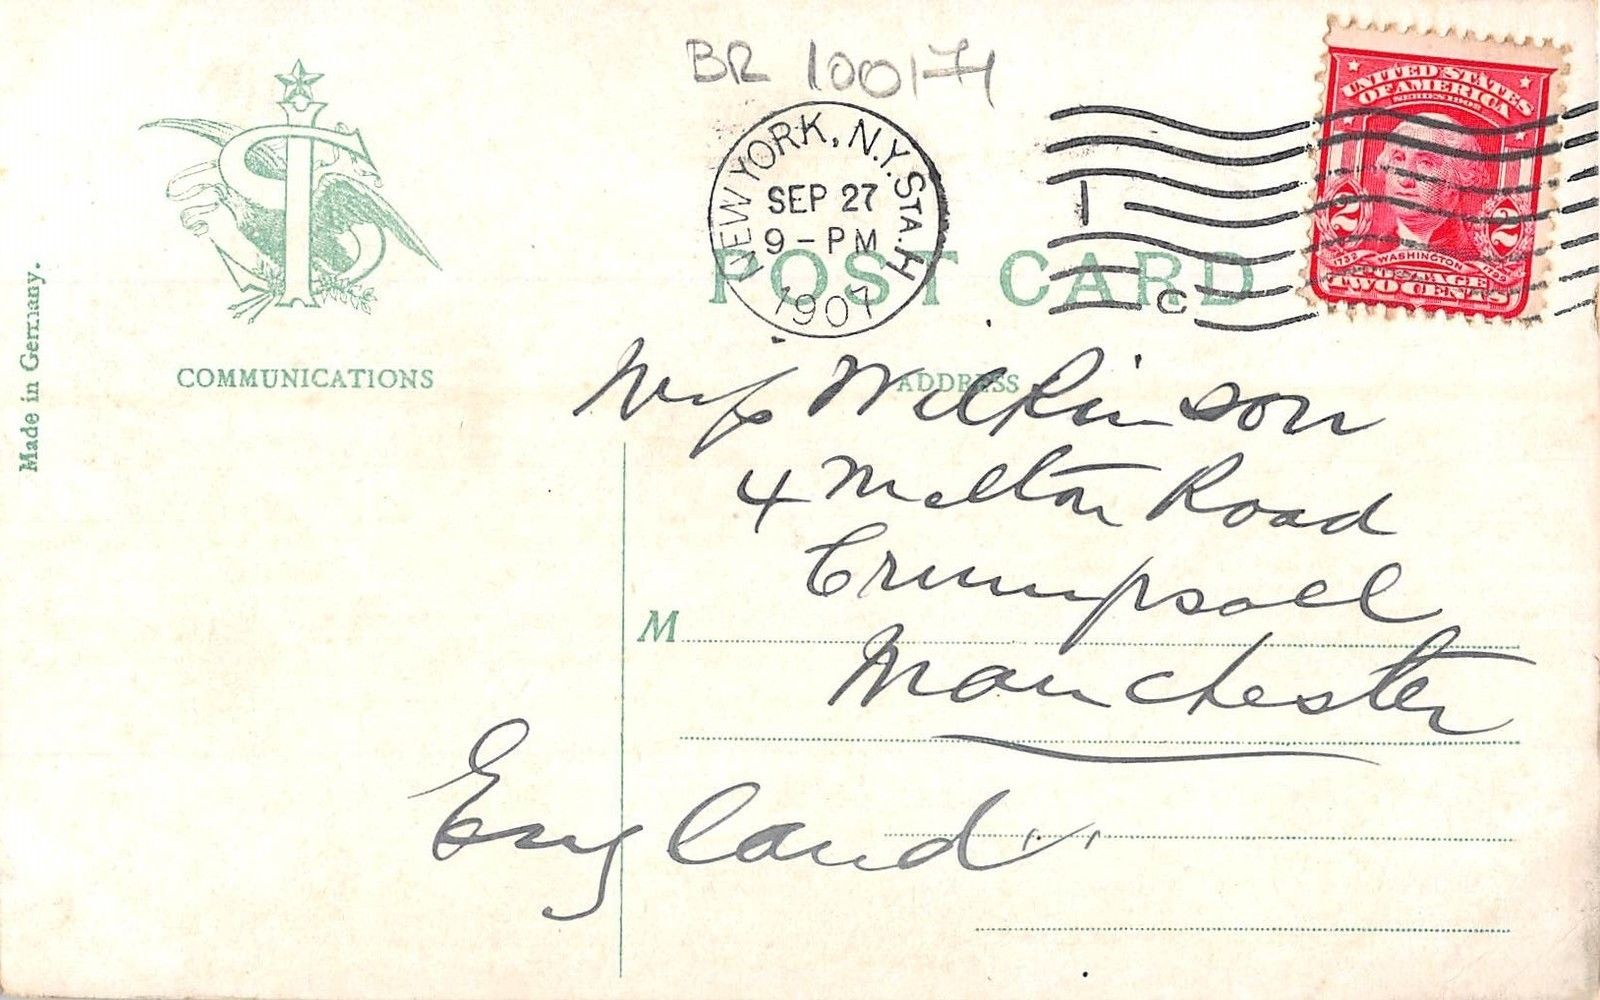 BR 10017H
NEW YORK, N.Y. STA. H
SEP 27
9-PM
1907
1
C
UNITED STATES
OF AMERICA
SERIES 1902
2 2
1732 WASHINGTON 1799
POSTAGE
TWO CENTS
POST CARD
COMMUNICATIONS
ADDRESS
Made in Germany.
Miss Wilkinson
4 Melton Road
Crumpsall
M
Manchester
England